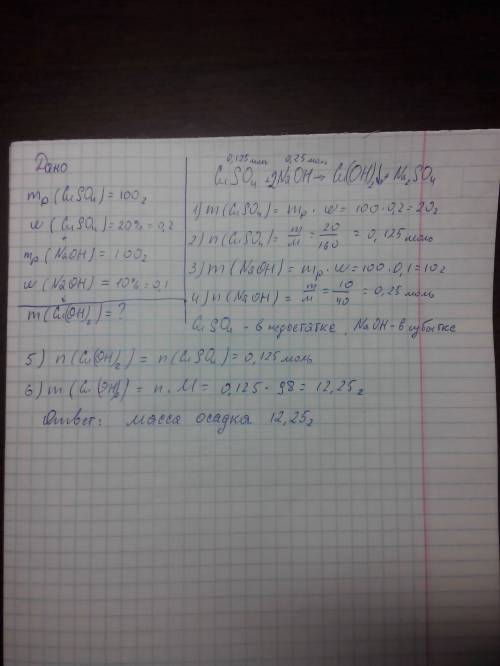 Дано
mр(CuSO₄) = 100г
w(CuSO₄) = 20% = 0,2
mр(NaOH) = 100г
w(NaOH) = 10% = 0,1
m(Cu(OH)₂) = ?
0,125 моль 0,25 моль
CuSO₄ + 2NaOH → Cu(OH)₂↓ + Na₂SO₄
1) m(CuSO₄) = mр · w = 100 · 0,2 = 20г
2) n(CuSO₄) = m/M = 20/160 = 0,125 моль
3) m(NaOH) = mр · w = 100 · 0,1 = 10г
4) n(NaOH) = m/M = 10/40 = 0,25 моль
CuSO₄ - в недостатке, NaOH - в избытке
5) n(Cu(OH)₂) = n(CuSO₄) = 0,125 моль
6) m(Cu(OH)₂) = n · M = 0,125 · 98 = 12,25г
Ответ: масса осадка 12,25г